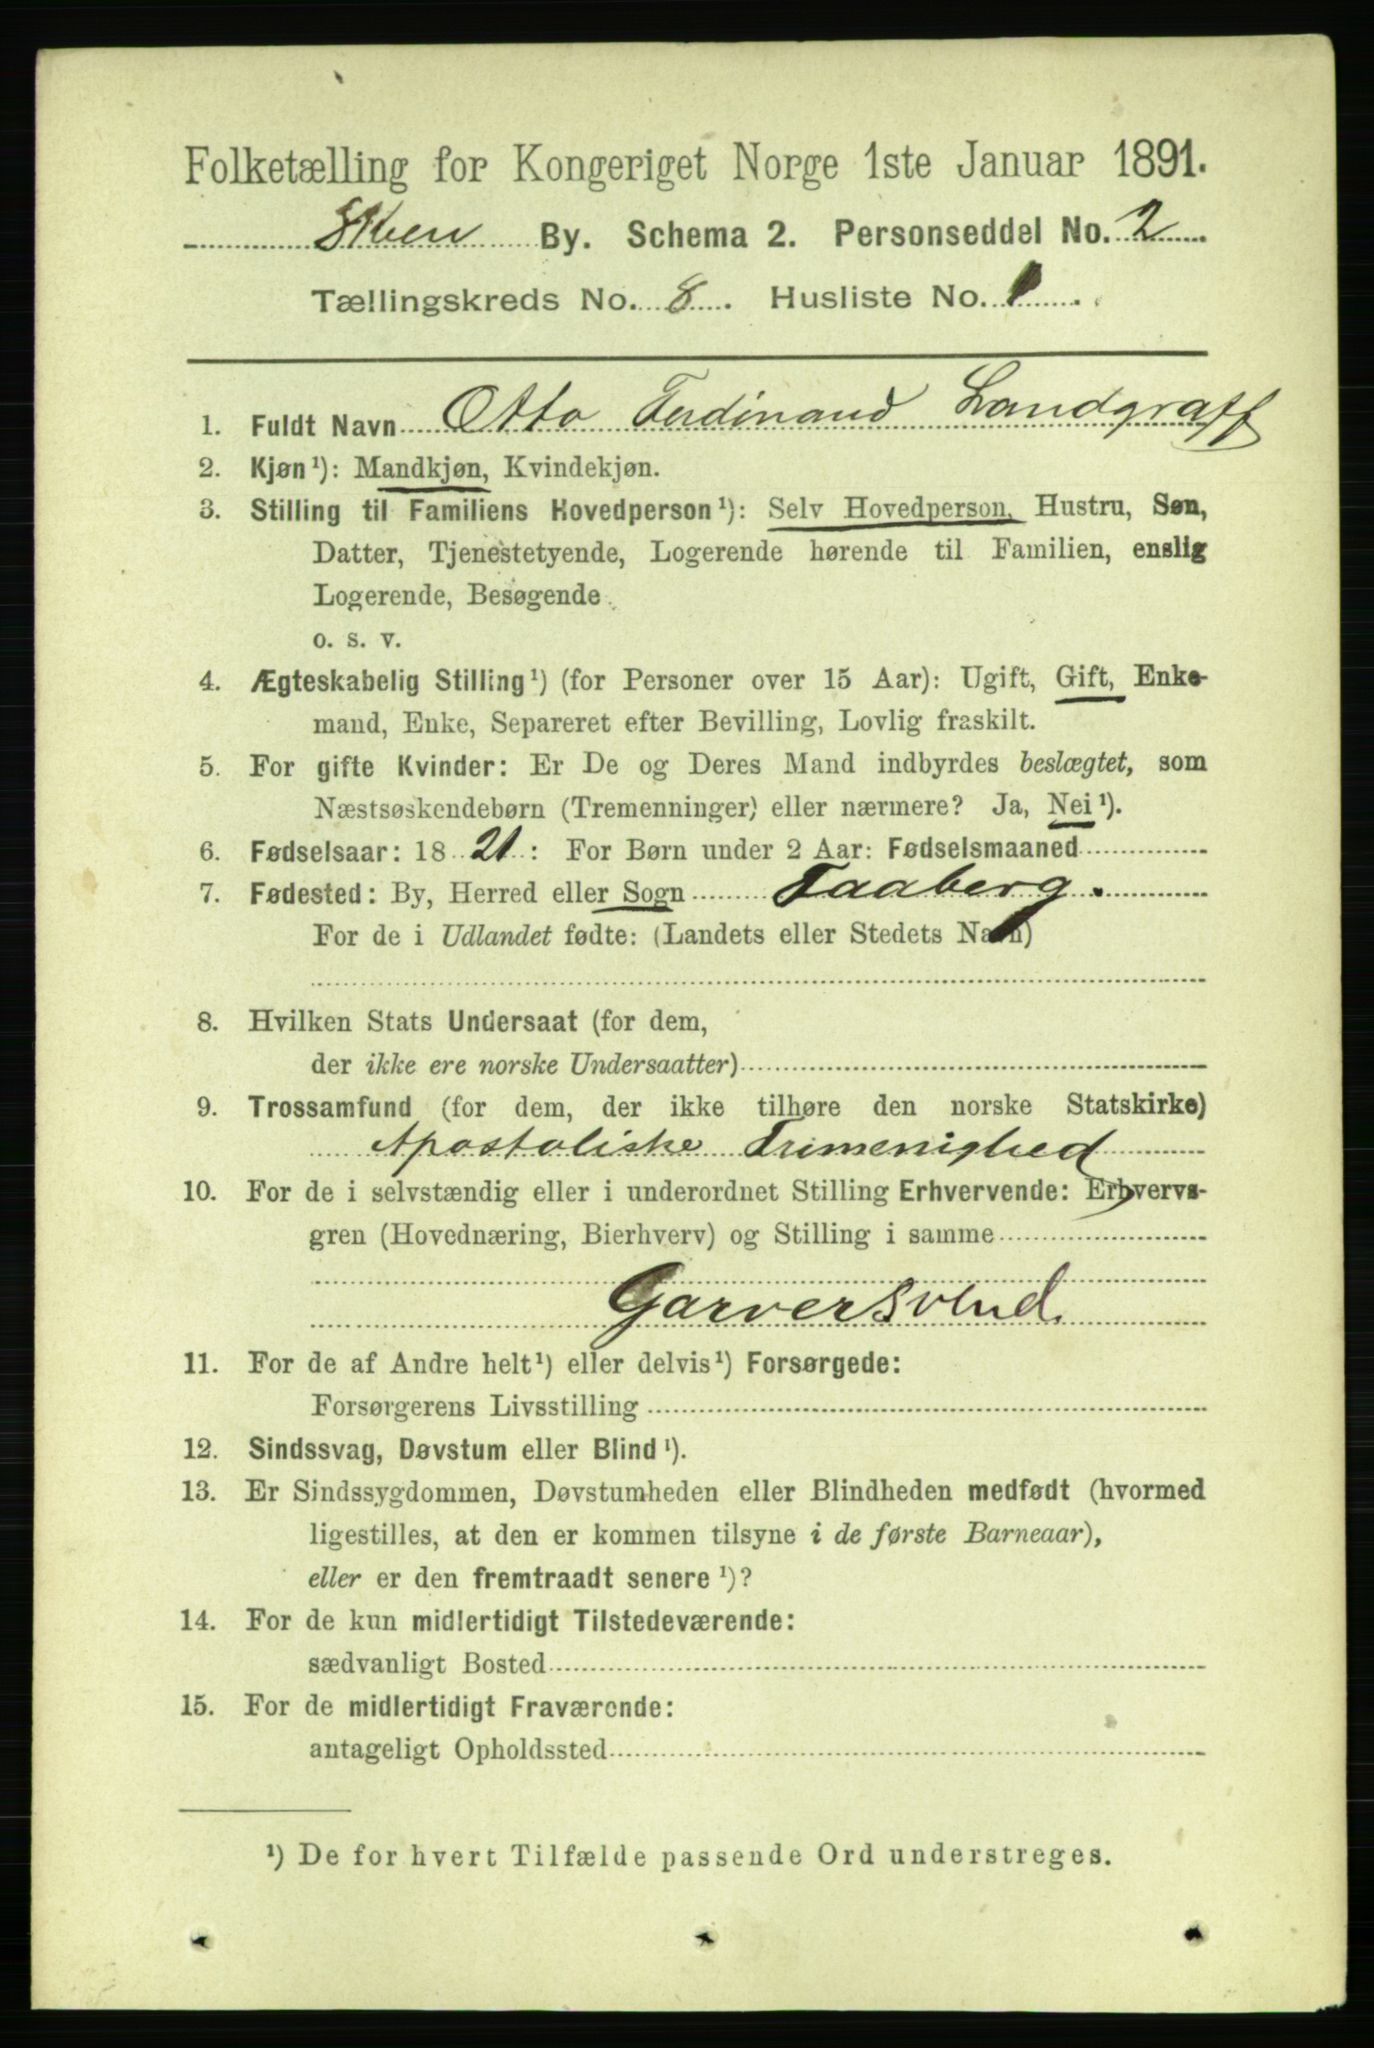 Folketælling for Kongeriget Norge 1ste Januar 1891.
Skien By. Schema 2. Personseddel No. 2
Tællingskreds No. 8. Husliste No. 1.
1. Fuldt Navn Otto Ferdinand Landgraff
2. Kjøn¹): Mandkjøn, Kvindekjøn.
3. Stilling til Familiens Hovedperson¹): Selv Hovedperson, Hustru, Søn,
Datter, Tjenestetyende, Logerende hørende til Familien, enslig
Logerende, Besøgende
o. s. v.
4. Ægteskabelig Stilling¹) (for Personer over 15 Aar): Ugift, Gift, Enke-
mand, Enke, Separeret efter Bevilling, Lovlig fraskilt.
5. For gifte Kvinder: Er De og Deres Mand indbyrdes beslægtet, som
Næstsøskendebørn (Tremenninger) eller nærmere? Ja, Nei¹).
6. Fødselsaar: 1821: For Børn under 2 Aar: Fødselsmaaned
7. Fødested: By, Herred eller Sogn Faaberg.
For de i Udlandet fødte: (Landets eller Stedets Navn)
8. Hvilken Stats Undersaat (for dem,
der ikke ere norske Undersaatter)
9. Trossamfund (for dem, der ikke tilhøre den norske Statskirke)
Apostoliske Frimenighed
10. For de i selvstændig eller i underordnet Stilling Erhvervende: Erhvervs-
gren (Hovednæring, Bierhverv) og Stilling i samme
Garversvend.
11. For de af Andre helt¹) eller delvis¹) Forsørgede:
Forsørgerens Livsstilling
12. Sindssvag, Døvstum eller Blind¹).
13. Er Sindssygdommen, Døvstumheden eller Blindheden medfødt (hvormed
ligestilles, at den er kommen tilsyne i de første Barneaar),
eller er den fremtraadt senere¹)?
14. For de kun midlertidigt Tilstedeværende:
sædvanligt Bosted
15. For de midlertidigt Fraværende:
antageligt Opholdssted
¹) De for hvert Tilfælde passende Ord understreges.